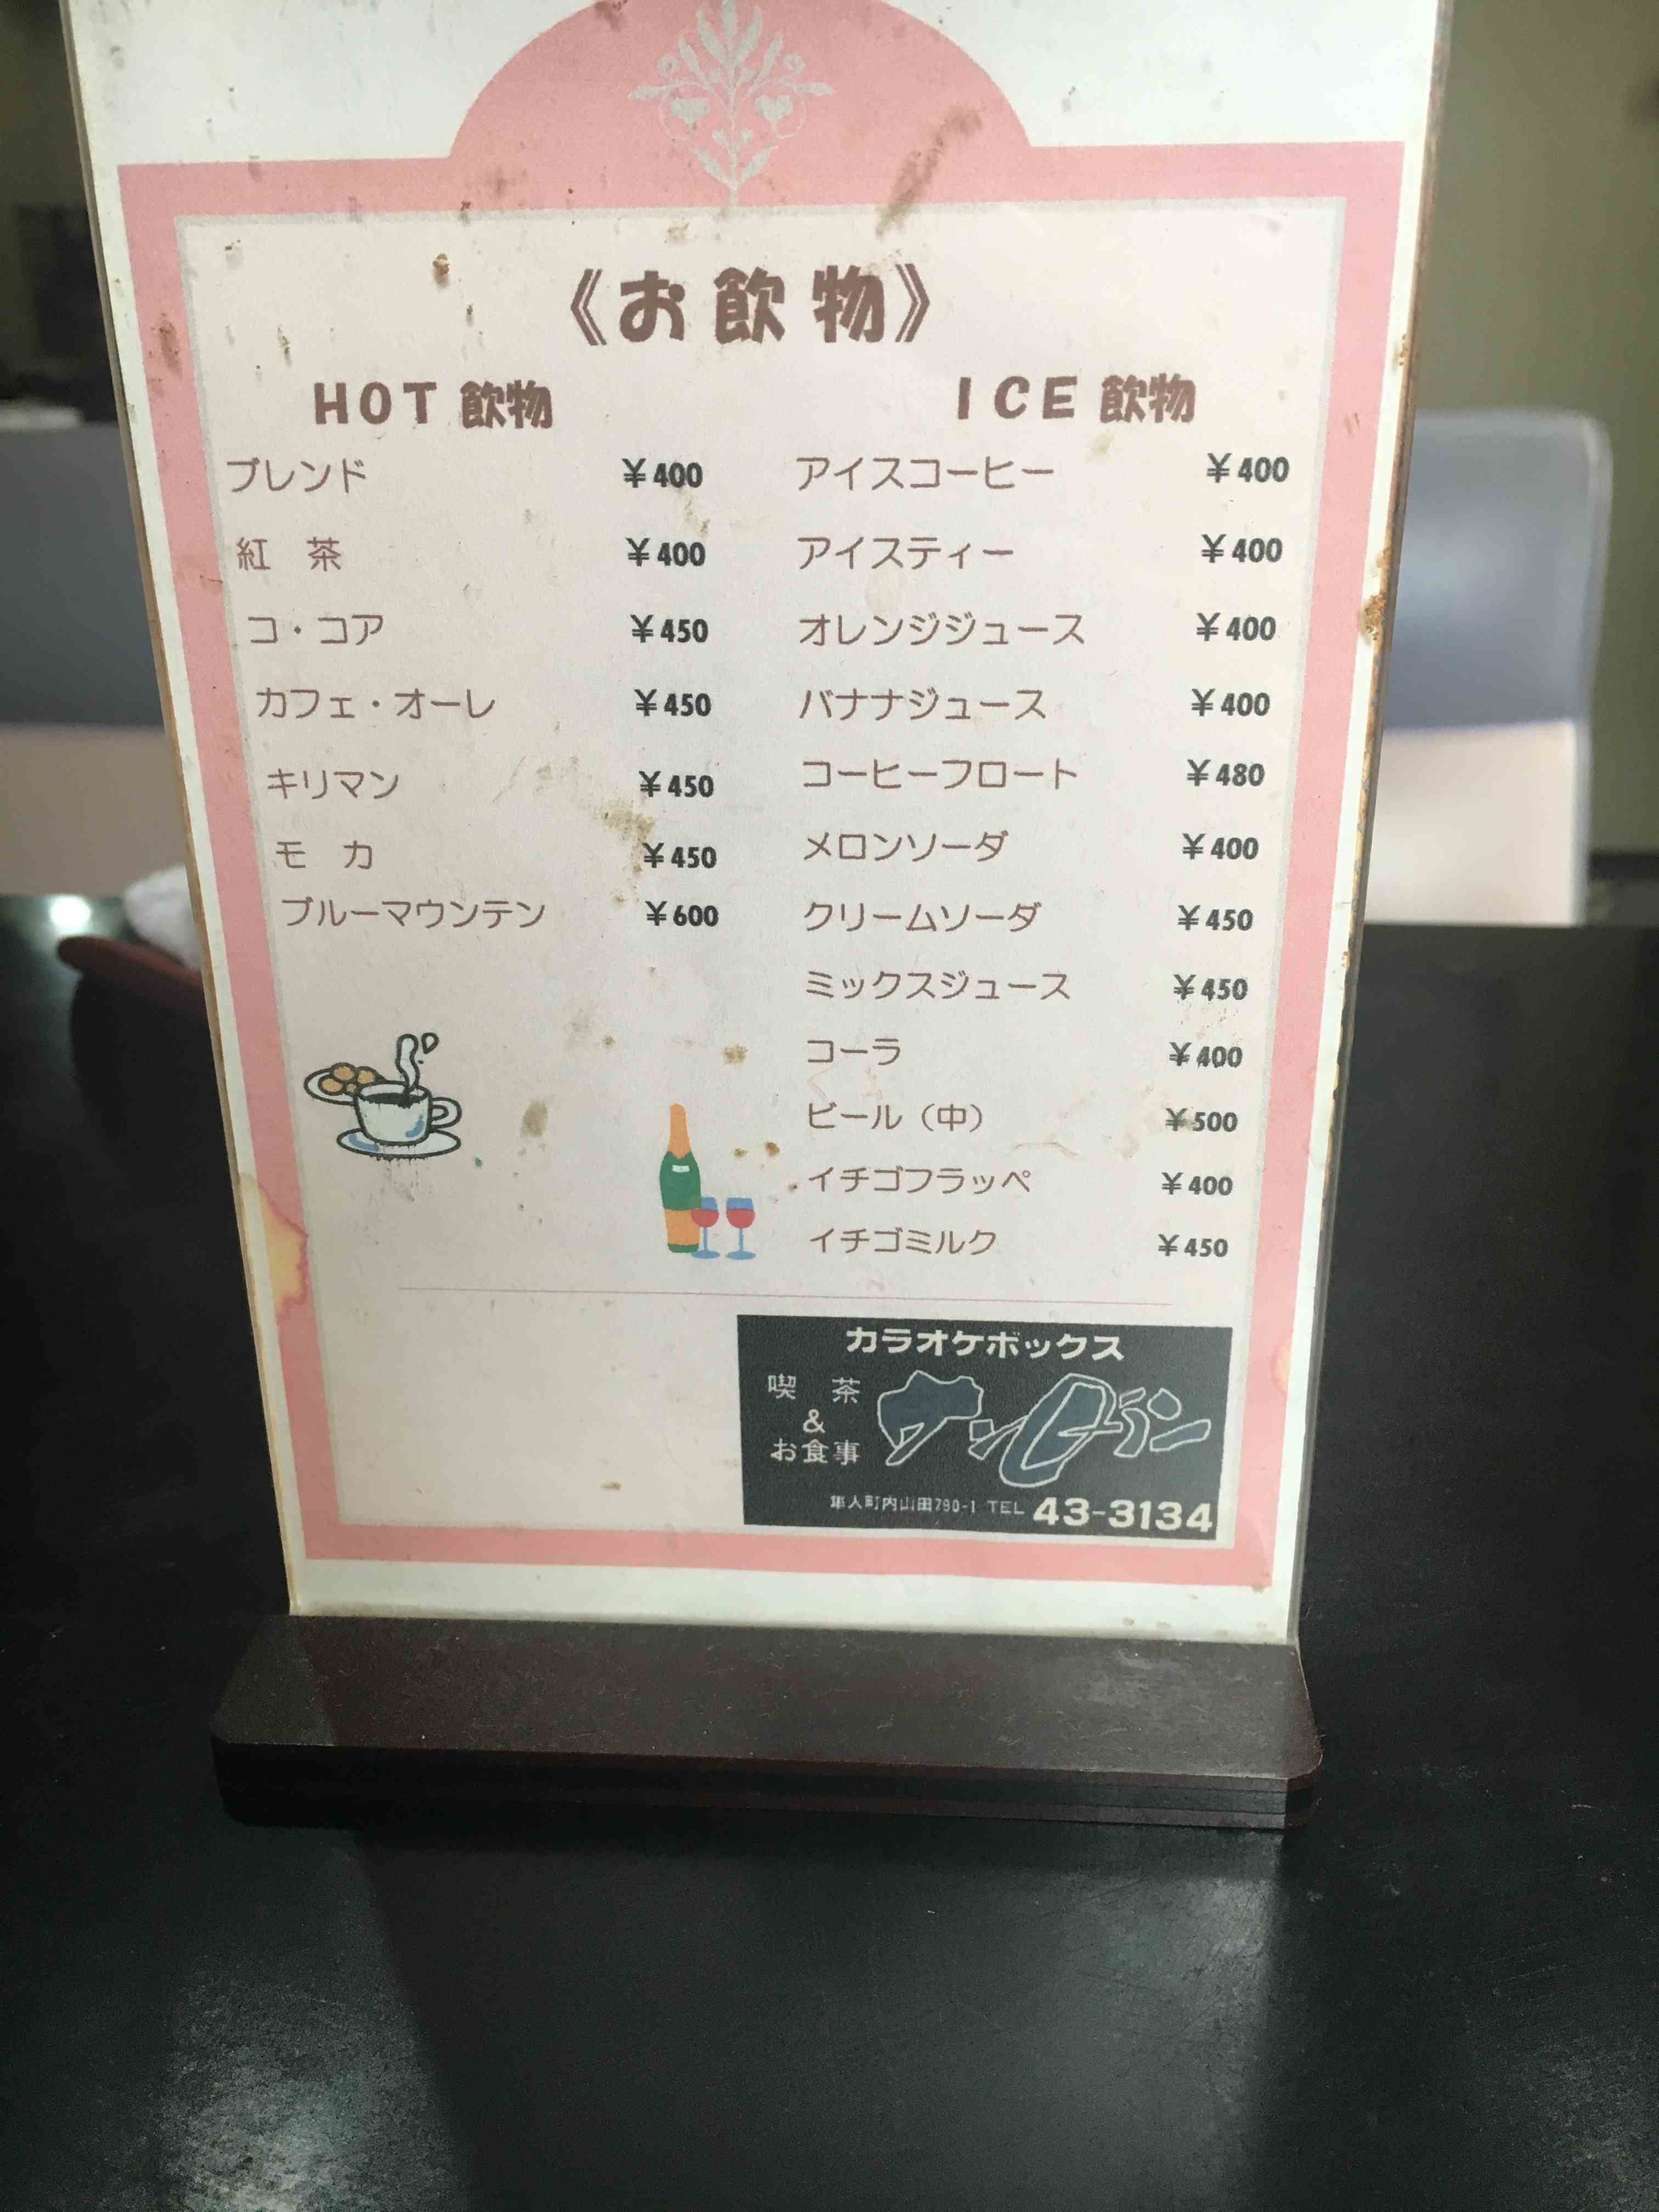 《お飲物》
HOT 飲物
ブレンド ¥400
紅 茶 ¥400
コ・コア ¥450
カフェ・オーレ ¥450
キリマン ¥450
モ カ ¥450
ブルーマウンテン ¥600
ICE 飲物
アイスコーヒー ¥400
アイスティー ¥400
オレンジジュース ¥400
バナナジュース ¥400
コーヒーフロート ¥480
メロンソーダ ¥400
クリームソーダ ¥450
ミックスジュース ¥450
コーラ ¥400
ビール（中） ¥500
イチゴフラッペ ¥400
イチゴミルク ¥450
カラオケボックス
喫 茶
&
お食事
隼人町内山田790-1 TEL 43-3134